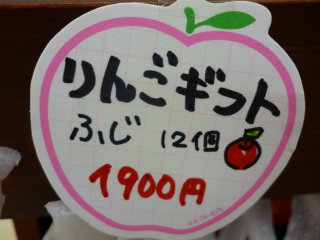 りんごギフト
ふじ 12個
1900円